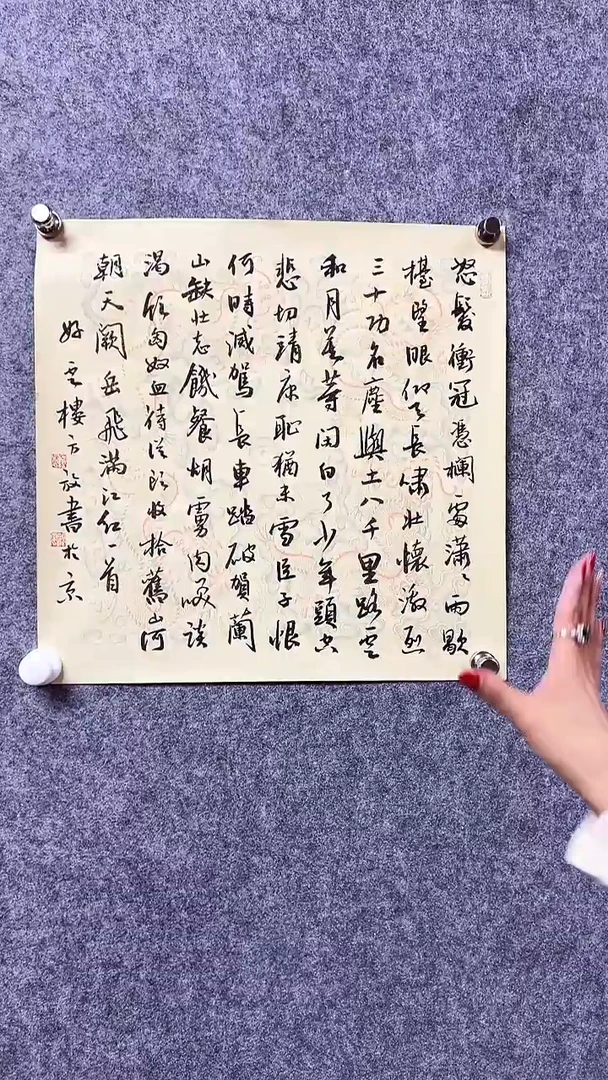 怒髮衝冠憑欄處瀟〻雨歇
擡望眼仰天長嘯壯懷激烈
三十功名塵與土八千里路雲
和月莫等閑白了少年頭空
悲切靖康恥猶未雪臣子恨
何時滅駕長車踏破賀蘭
山缺壯志饑餐胡虜肉笑談
渴飲匈奴血待從頭收拾舊山河
朝天闕岳飛滿江紅一首
好雲樓方放書於京